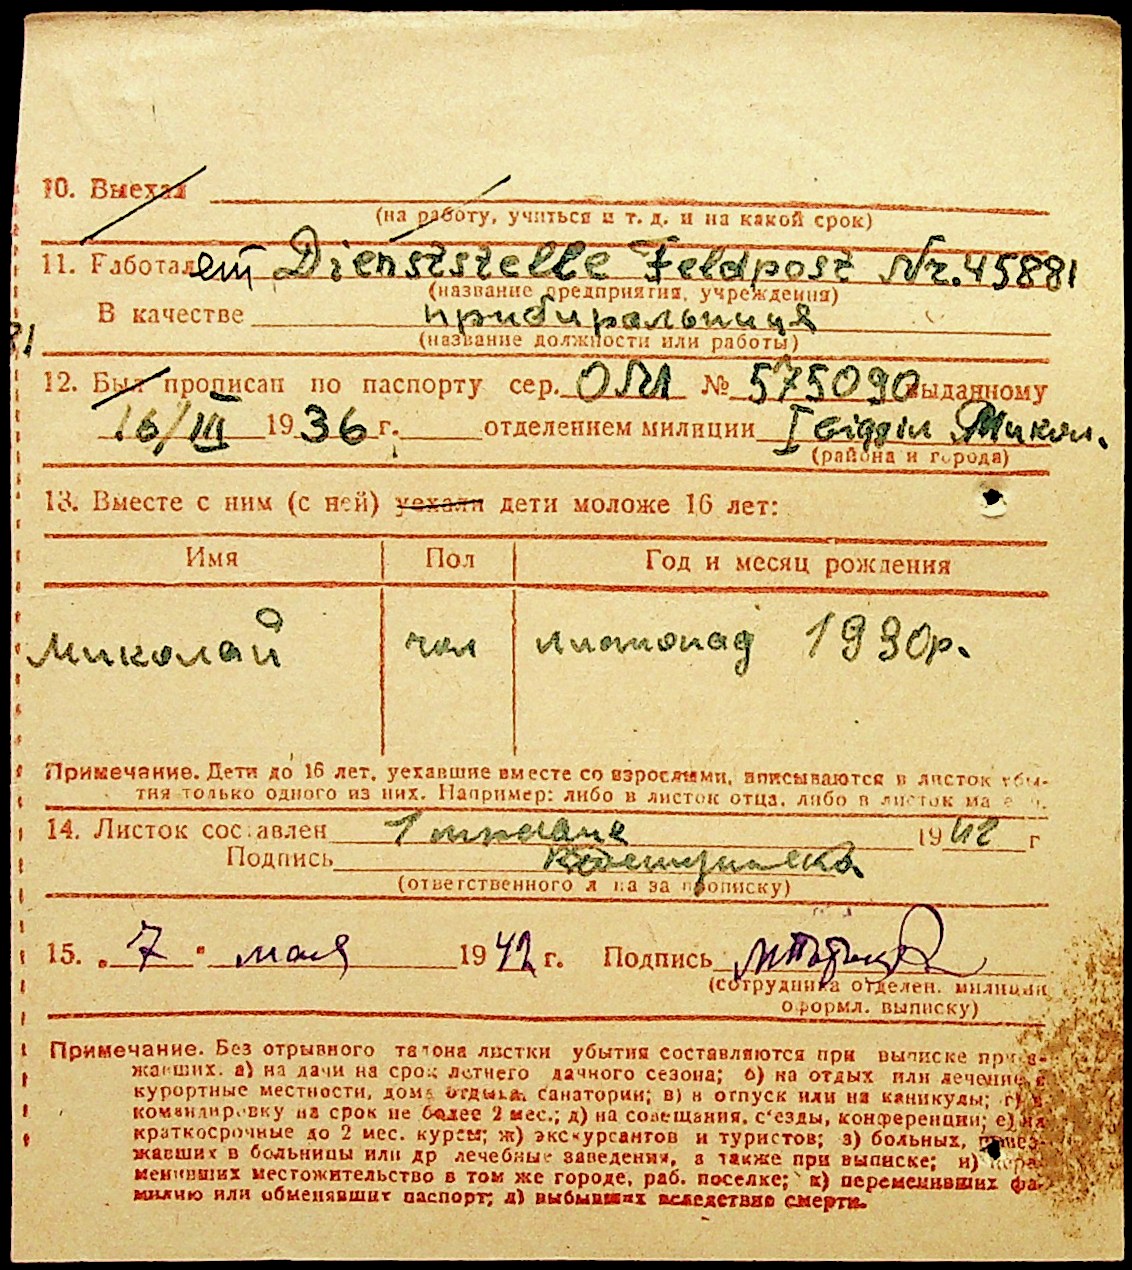 10. Выехал
(на работу, учиться и т. д. и на какой срок)
11. Работал Dienststelle Feldpost Nr. 45881
(название предприятия, учреждения)
В качестве прибиральниця
(название должности или работы)
12. Был прописан по паспорту сер. № 575090 выданному
16/III 1936 г. отделением милиции I Микол.
(района и города)
13. Вместе с ним (с ней) уехали дети моложе 16 лет:
Имя Пол Год и месяц рождения
Миколай чол листопад 1930р.
Примечание. Дети до 16 лет, уехавшие вместе со взрослыми, вписываются в листок убы-
тия только одного из них. Например: либо в листок отца, либо в листок
14. Листок составлен 1 1942 г
Подпись
(ответственного лица за прописку)
15. „ 7 " мая 1942 г. Подпись
(сотрудника отделен. милиции
оформл. выписку)
Примечание. Без отрывного талона листки убытия составляются при выписке приез-
жавших. а) на дачи на срок летнего дачного сезона; б) на отдых или лечение в
курортные местности, дома отдыха, санатории; в) в отпуск или на каникулы; г) в
командировку на срок не более 2 мес.; д) на совещания, с'езды, конференции; е) на
краткосрочные до 2 мес. курсы; ж) экскурсантов и туристов; з) больных, приез-
жавших в больницы или др лечебные заведения, а также при выписке; и) пере-
менивших местожительство в том же городе, раб. поселке; к) переменивших фа-
милию или обменявших паспорт; л) выбывших вследствие смерти.